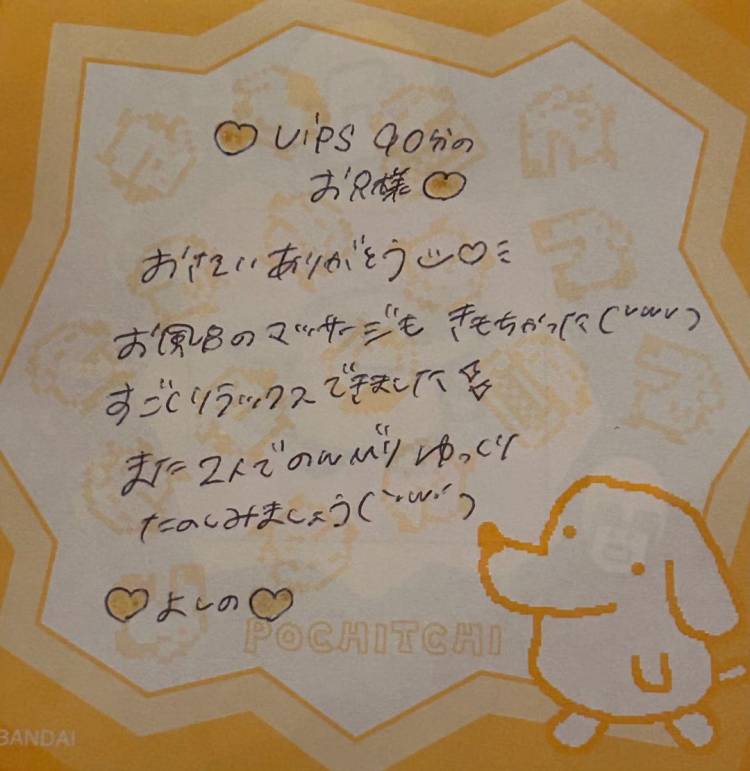 ♡ VIPS 90分の
お兄様 ♡
おさそいありがとう ♡
お風呂のマッサージも きもちかった(˘ω˘)
すごくリラックスできました
また2人でのんびり ゆっくり
たのしみましょう(˘ω˘)
♡ よしの ♡
POCHITCHI
BANDAI